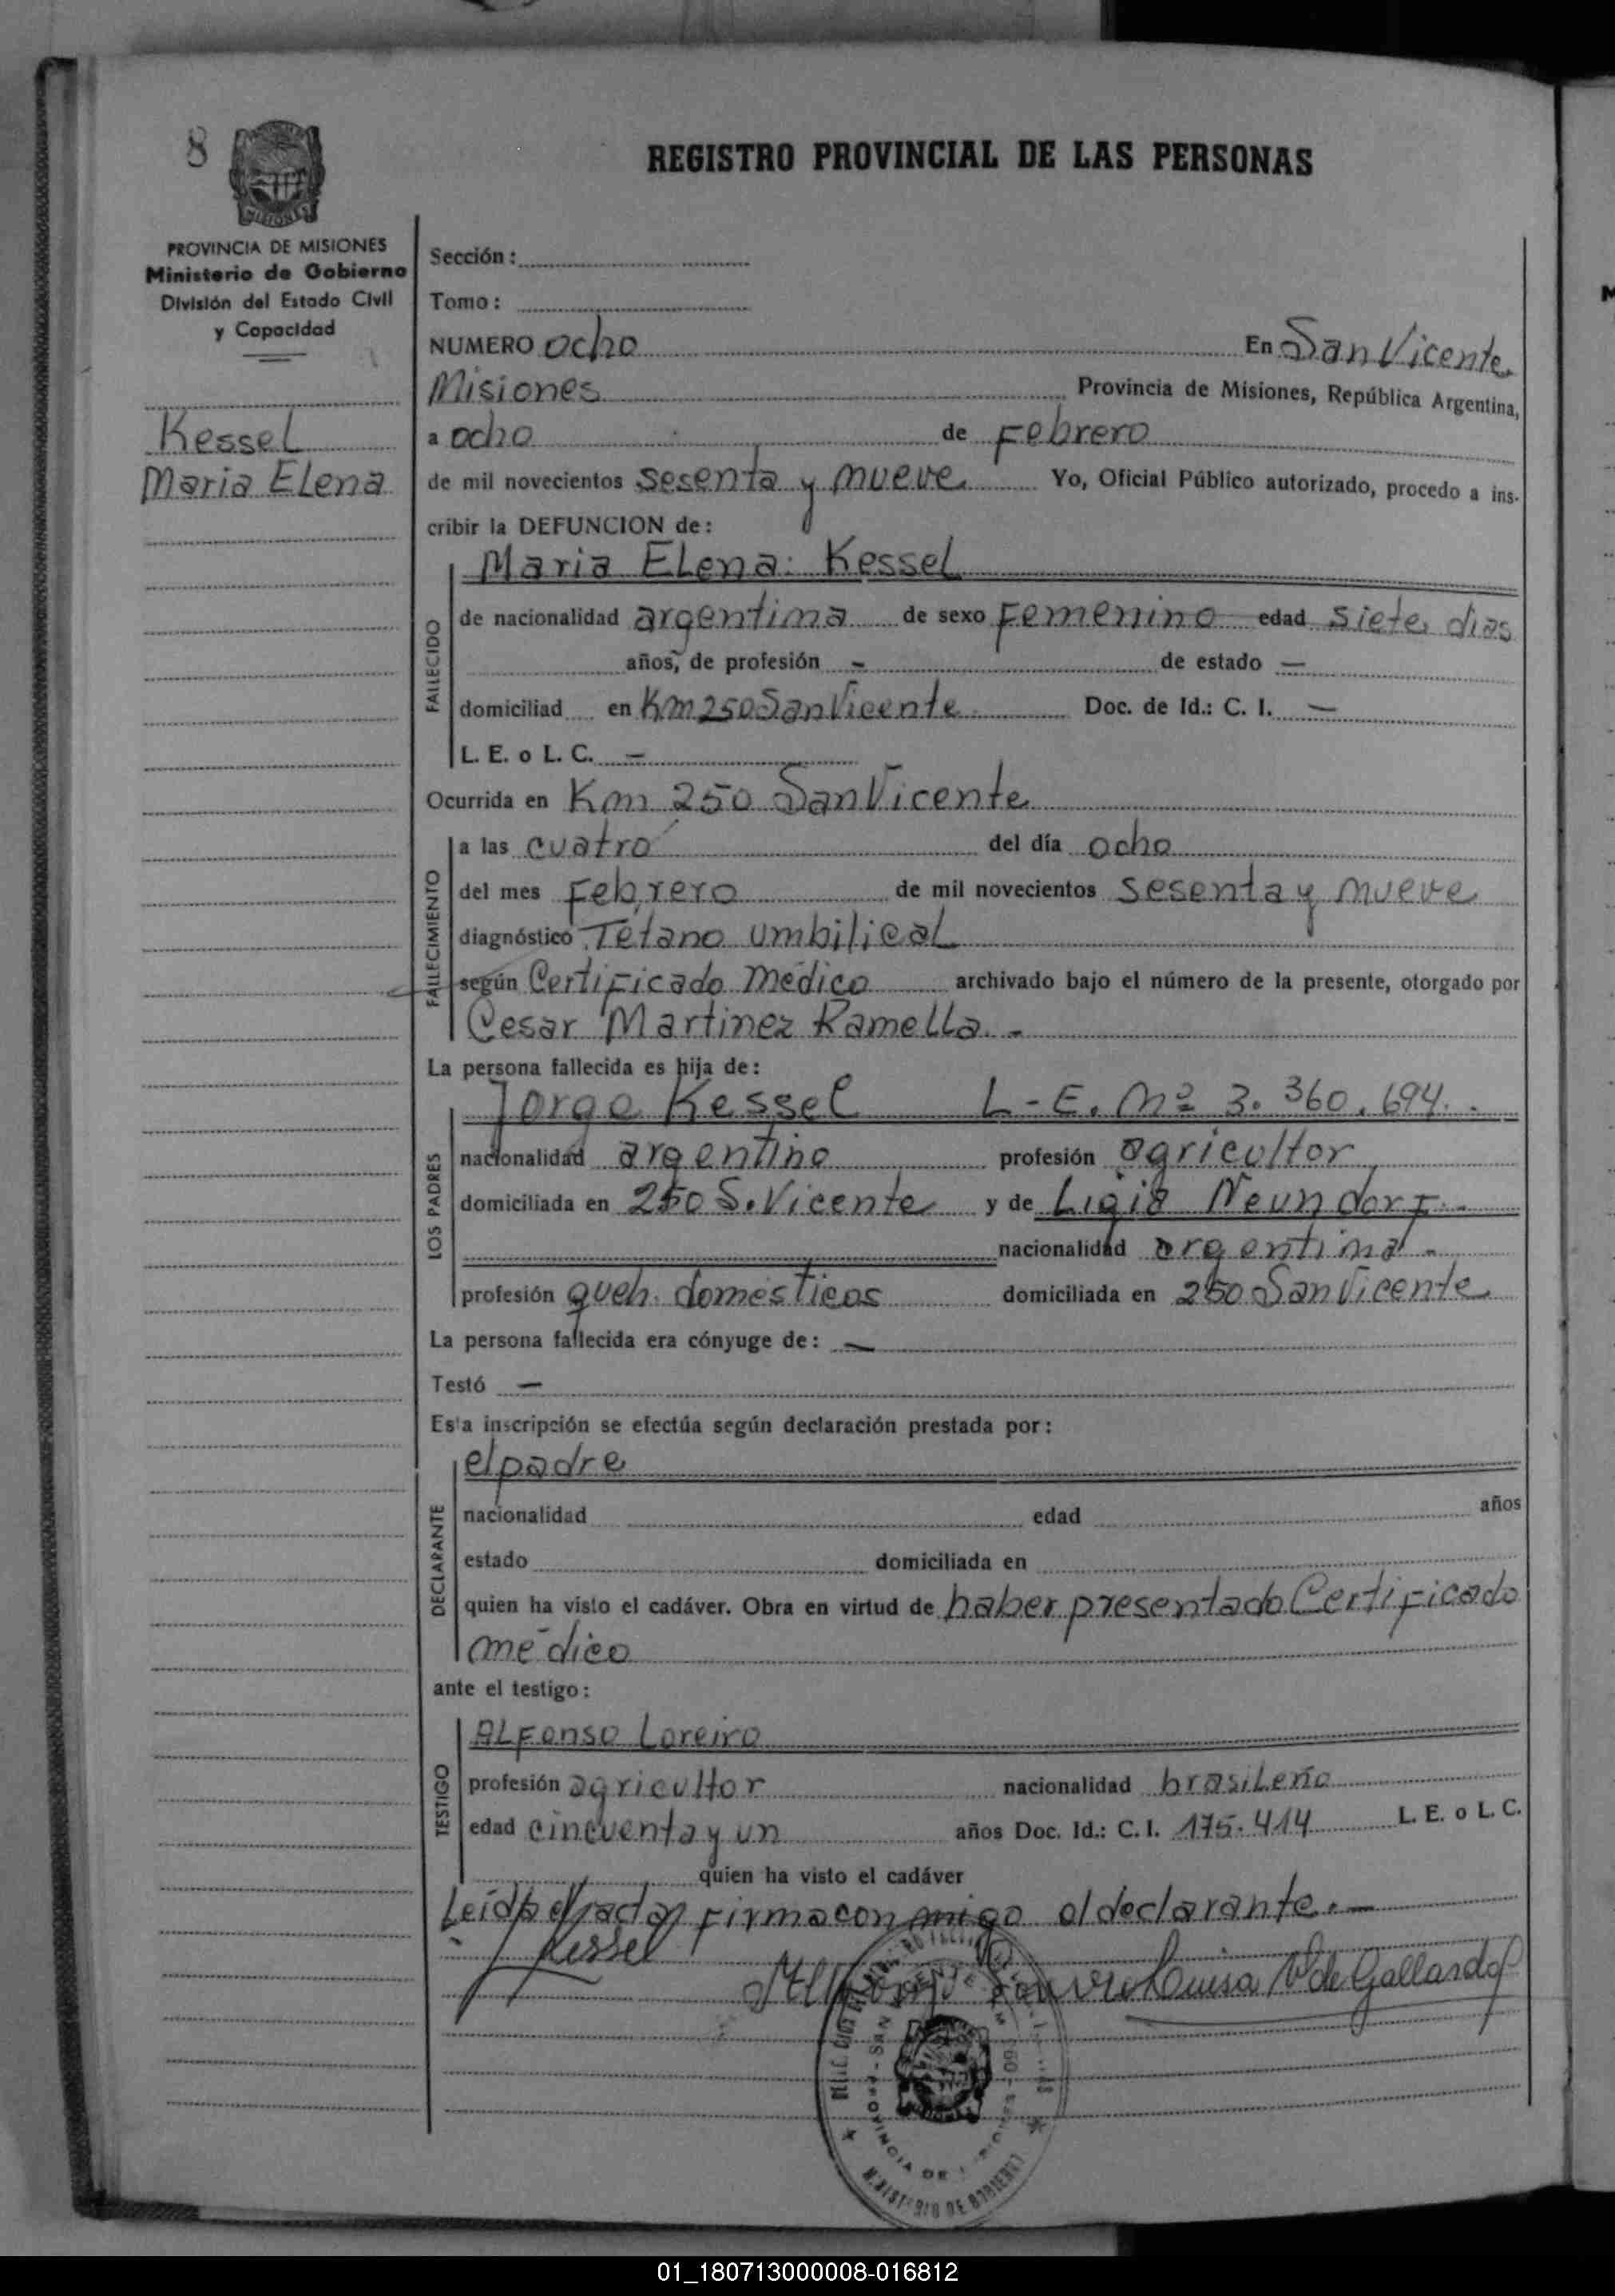 8
REGISTRO PROVINCIAL DE LAS PERSONAS
MISIONES
PROVINCIA DE MISIONES
Ministerio de Gobierno
División del Estado Civil
y Capacidad
Kessel
Maria Elena
Sección:
Tomo:
NUMERO ocho En San Vicente
Misiones Provincia de Misiones, República Argentina,
a ocho de Febrero
de mil novecientos sesenta y nueve Yo, Oficial Público autorizado, procedo a ins-
cribir la DEFUNCION de:
FALLECIDO
Maria Elena: Kessel
de nacionalidad argentina de sexo Femenino edad siete dias
años, de profesión - de estado -
domiciliad en Km 250 San Vicente Doc. de Id.: C. I. -
L. E. o L. C. -
Ocurrida en Km 250 San Vicente
FALLECIMIENTO
a las cuatro del día ocho
del mes Febrero de mil novecientos sesenta y nueve
diagnóstico Tetano umbilical
según Certificado médico archivado bajo el número de la presente, otorgado por
Cesar Martinez Ramella -
La persona fallecida es hija de:
LOS PADRES
Jorge Kessel L-E. Nº 3.360.694.
nacionalidad argentino profesión agricultor
domiciliada en 250 S. Vicente y de Ligia Neundorf -
nacionalidad argentina -
profesión queh. domésticos domiciliada en 250 San Vicente
La persona fallecida era cónyuge de: -
Testó -
Esta inscripción se efectúa según declaración prestada por:
DECLARANTE
el padre
nacionalidad edad años
estado domiciliada en
quien ha visto el cadáver. Obra en virtud de haber presentado Certificado
médico
ante el testigo:
TESTIGO
Alfonso Loreiro
profesión agricultor nacionalidad brasileño
edad cincuenta y un años Doc. Id.: C. I. 175.414 L. E. o L. C.
quien ha visto el cadáver
Leída el acta, firma conmigo el declarante. -
J Kessel
Luisa V de Gallardo
PROVINCIA DE
MINISTERIO DE GOBIERNO
01_180713000008-016812